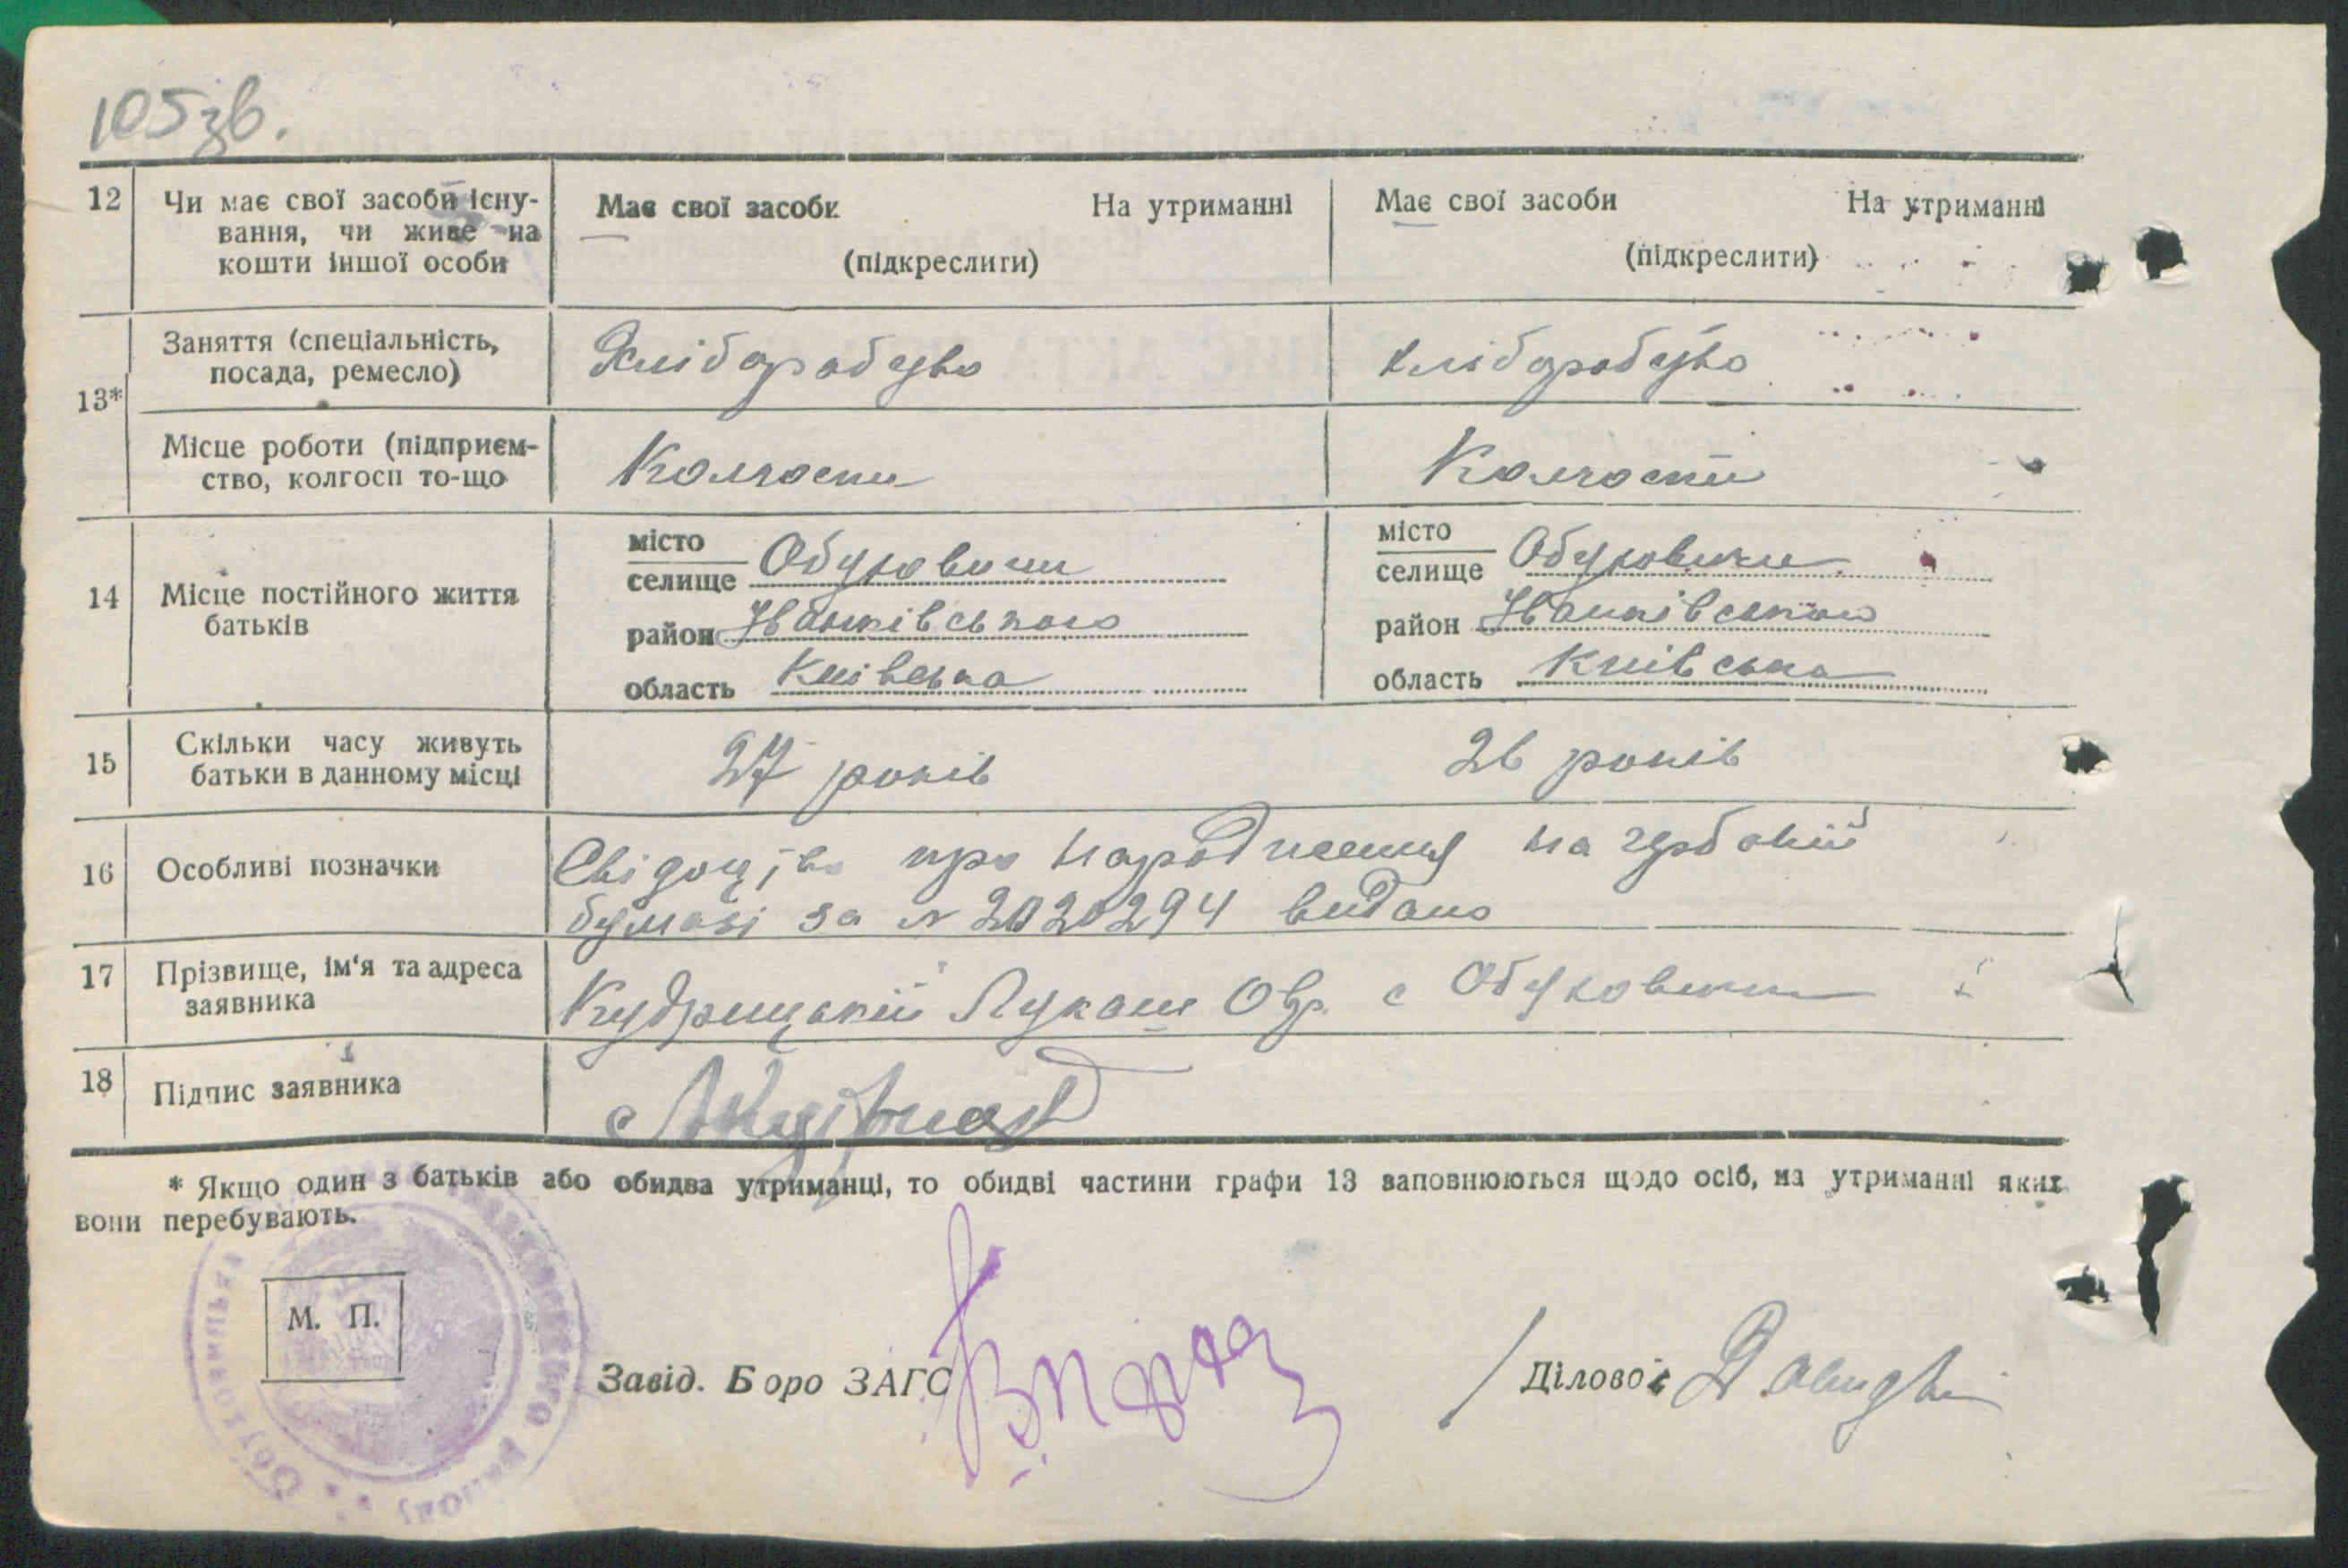 105зв.
12 Чи має свої засоби існу-
вання, чи живе на
кошти іншої особи
Має свої засоби На утриманні
(підкреслити)
Має свої засоби На утриманні
(підкреслити)
13*
Заняття (спеціальність,
посада, ремесло)
Хліборобство
хліборобство
Місце роботи (підприєм-
ство, колгосп то-що
Колгосп
Колгосп
14 Місце постійного життя
батьків
місто
селище Обуховичи
район Іванківського
область Київська
місто
селище Обуховичи
район Іванківського
область Київська
15 Скільки часу живуть
батьки в данному місці
27 років
26 років
16 Особливі позначки
Свідоцтво про народження на гербовій
бумазі за № 2020294 видано
17 Прізвище, ім'я та адреса
заявника
Кудрицький Лукаш Овр. с Обуховичи
18 Підпис заявника
* Якщо один з батьків або обидва утриманці, то обидві частини графи 13 заповнюються щодо осіб, на утриманні яких
вони перебувають.
М. П.
Завід. Бюро ЗАГС
Діловод